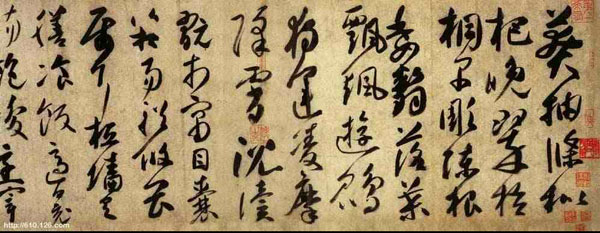 莽抽條枇
杷晚翠梧
桐早彫陳根
委翳落葉
飄颻遊鵾
獨運凌摩
絳霄耽讀
翫市寓目囊
箱易輶攸畏
屬耳垣牆具
膳飡飯適口充
腸飽飫烹宰
http://610.126.com